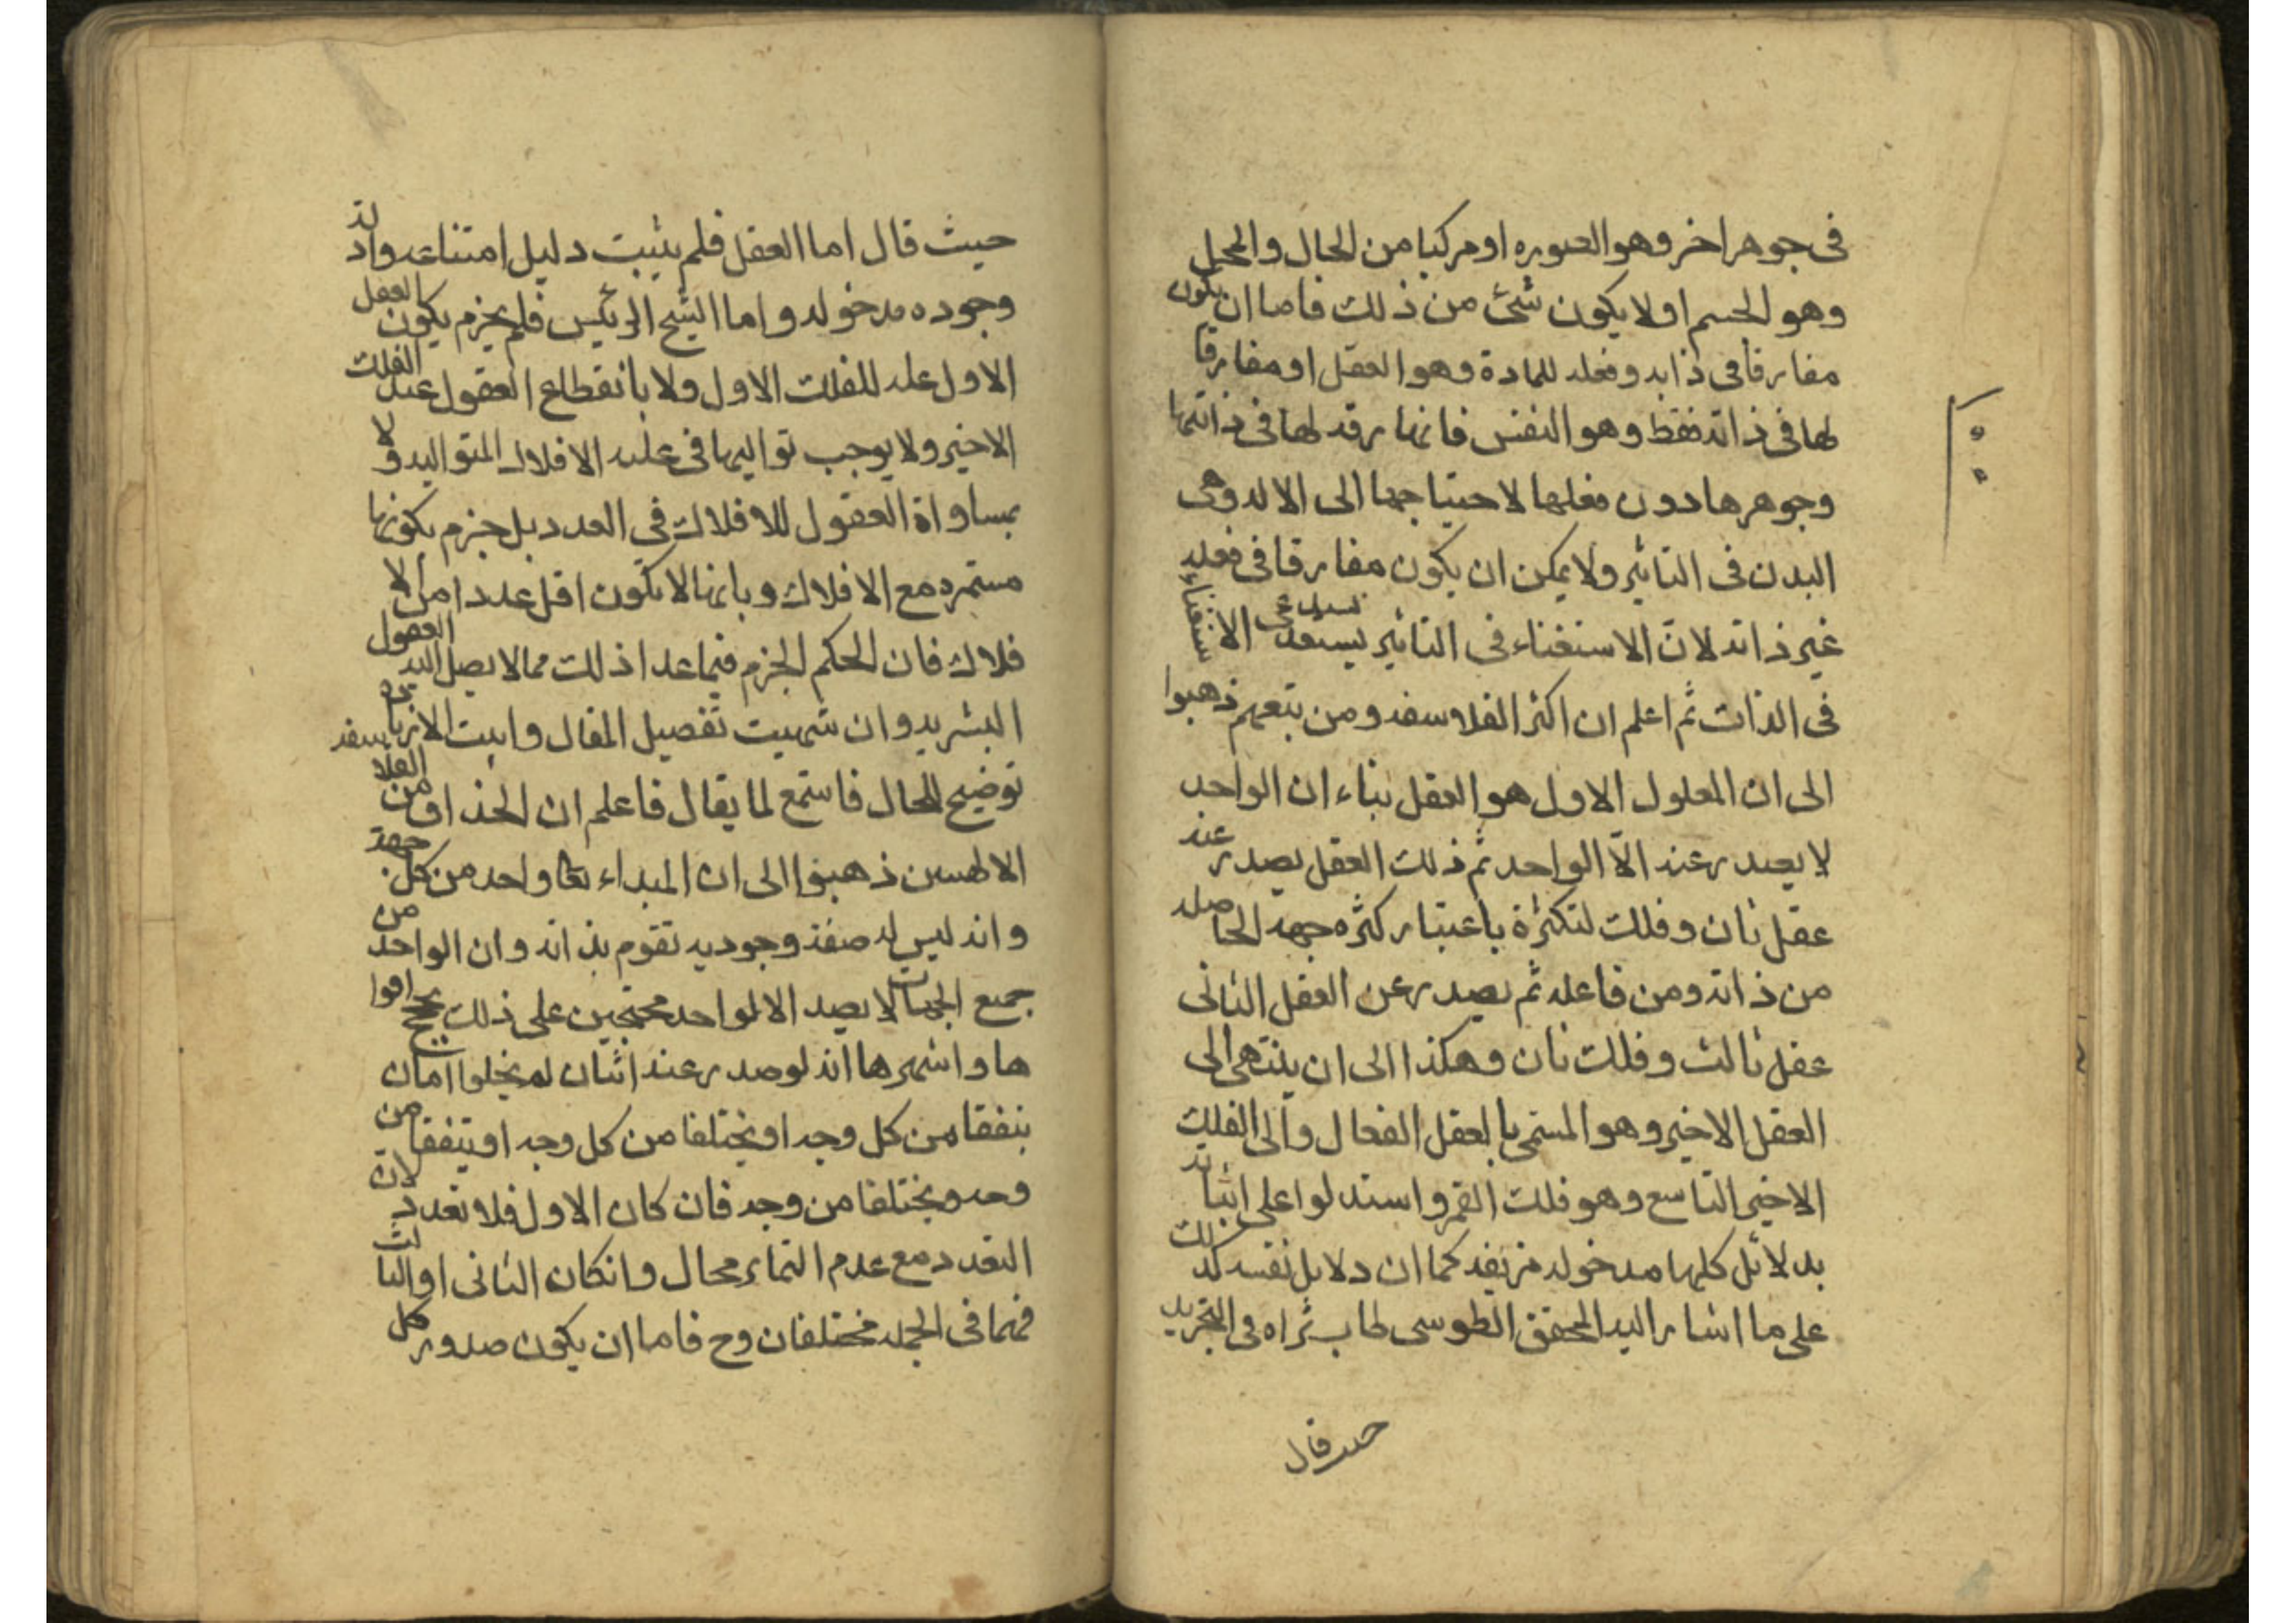 في جوهر اخر وهو الصوره او مركبا من الحال والمحل
وهو الجسم او لا يكون شئ من ذلك فاما ان يكون
مفارقا في ذاته وفعله للمادة وهو العقل او مفارقا
لها في ذاته فقط وهو النفس فانها مفارقة لها في ذاتها
وجوهرها دون فعلها لاحتياجها الى الاله وهي
البدن في التاثير ولا يمكن ان يكون مفارقا في فعله
غير ذاته لانّ الاستغناء في التاثير يستدعى الاستغناء
في الذات ثم اعلم ان اكثر الفلاسفه ومن يتبعهم ذهبوا
الى ان المعلول الاول هو العقل بناء ان الواحد
لا يصدر عنه الّا الواحد ثم ذلك العقل يصدر عنه
عقل ثان وفلك لتكثرة باعتبار كثره جهه الحاصله
من ذاته ومن فاعله ثم يصدر عن العقل الثانى
عقل ثالث وفلك ثان وهكذا الى ان ينتهى الى
العقل الاخير وهو المسمى بالعقل الفعال والى الفلك
الاخير التاسع وهو فلك القمر واستدلوا على اثباته
بدلائل كلها مدخوله مزيفه كما ان دلايل نفسه كذلك
على ما اشار اليه المحقق الطوسى طاب ثراه في التجريد
حيث قال
حيث قال اما العقل فلم يثبت دليل امتناعه وادلة
وجوده مدخوله واما الشيخ الرئيس فلم يجزم يكون العقل
الاول عله للفلك الاول ولا بانقطاع العقول عند الفلك
الاخير ولا يوجب تواليها في علية الافلاك المتواليه ولا
بمساواة العقول للافلاك في العدد بل جزم بكونها
مستمره مع الافلاك وبانها لا يكون اقل عددا من الا
فلاك فان الحكم الجزم فيما عدا ذلك مما لا يصل اليه العقول
البشريه وان شهيت تفصيل المقال وابيت الا زياده
توضيح للحال فاستمع لما يقال فاعلم ان الحذاق من الفلاسفه
الالهيين ذهبوا الى ان المبداء تعا واحد من كل جهة
وانه ليس له صفة وجوديه تقوم بذاته وان الواحد من
جميع الجهات لا يصد الا لواحد محتجين على ذلك بحجج اقوا
ها واشهرها انه لو صدر عنه اثنان لم يخلوا امان
يتفقا من كل وجه او يختلفا من كل وجه او يتفقا من
وجه ويختلفا من وجه فان كان الاول فلا تعدد لان
التعدد مع عدم التمايز محال وانكان الثانى او الثالث
فهما في الجمله مختلفان وح فاما ان يكون صدور كل